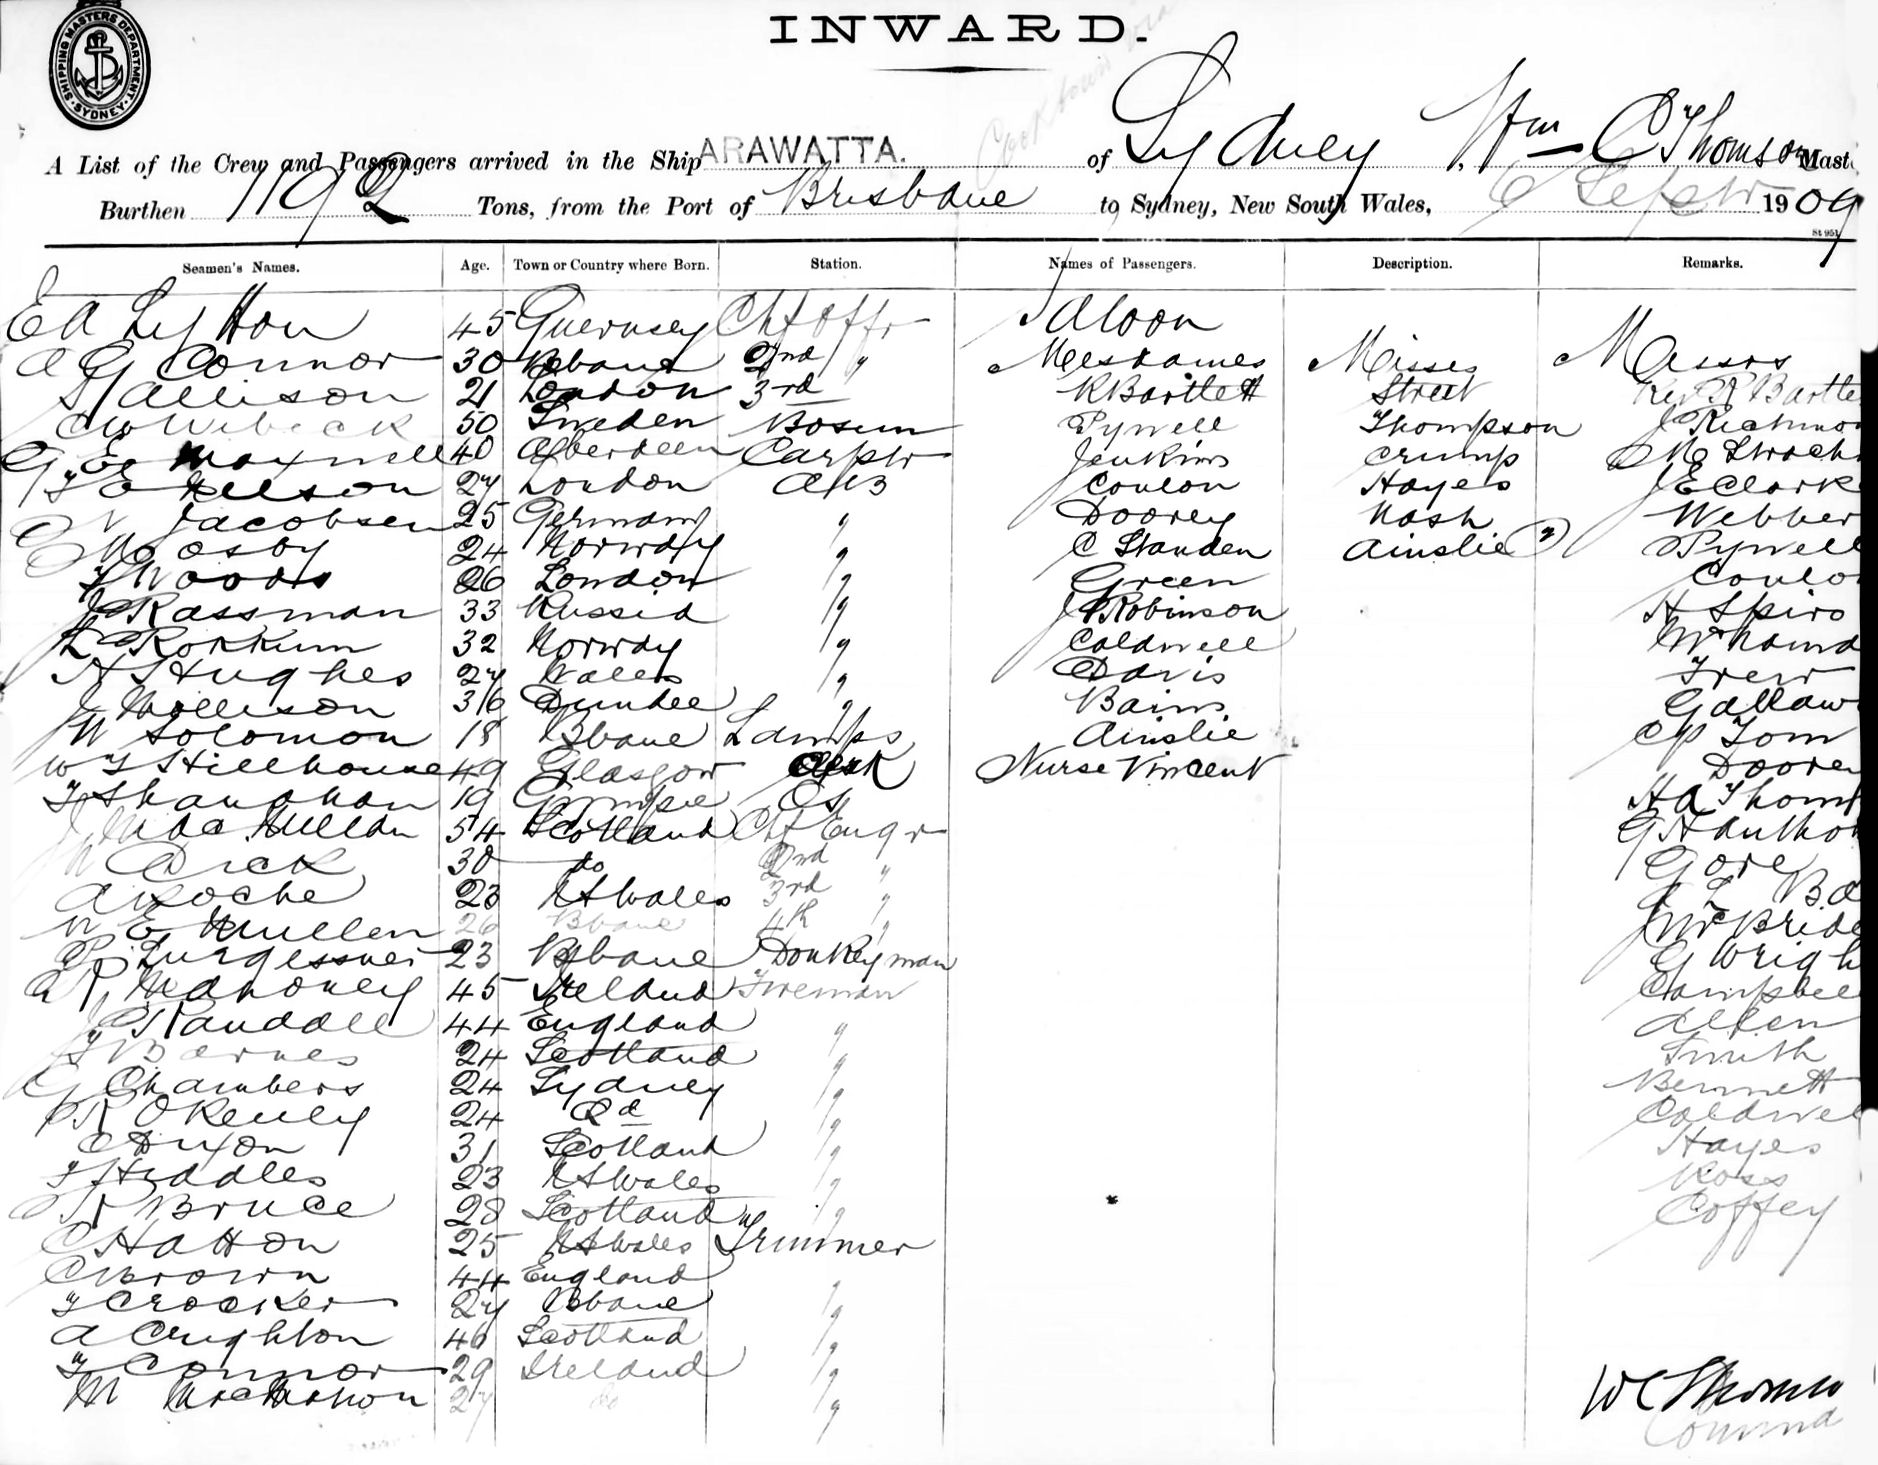 SHIPPING MASTERS DEPARTMENT SYDNEY
INWARD.
Cooktown
A List of the Crew and Passengers arrived in the Ship ARAWATTA. of Sydney, Wm C Thomson Mast
Burthen 1192 Tons, from the Port of Brisbane to Sydney, New South Wales, 6 Septr 1909
St 951
Seamen's Names. Age. Town or Country where Born. Station. Names of Passengers. Description. Remarks.
E A Lytton 45 Guernsey Chf Offr Saloon
A G Connor 30 Bbane 2nd " Mesdames Misses Messrs
S Allison 21 London 3rd K Bartlett Street Rev R Bartle
C W Wibeck 50 Sweden Bosun Pywell Thompson J Richmon
G E Maxwell 40 Aberdeen Carptr Jenkins Crump
Nelson 27 London AB Coulon Hayes J E Clark
N Jacobsen 25 Germany " Doorey Nash Webber
M Osby 24 Norway " C Standen Ainslie Pywell
T Woods 26 London " Green Coulo
J Rassman 33 Russia " J Robinson H Spiro
L Rorkum 32 Norway " Caldwell
H Hughes 27 Wales " Davis Trew
J Mollison 36 Dundee " Bain Gallaw
W Solomon 18 Bbane Lamps Ainslie C P Tom
W T Stillhouse 49 Glasgow Clerk Nurse Vincent Doore
T Shanahan 19 Gympie OS H A Thom
J MacMillan 54 Scotland Chf Engr G H Antho
W Dick 30 do 2nd " Gore
A Roche 23 N S Wales 3rd " J L Ba
W E Mullen 26 Bbane 4th " J McBride
P Turgessner 23 Bbane Donkeyman G Wrigh
Mahoney 45 Ireland Fireman Campbel
J Randall 44 England " Allen
T Barnes 24 Scotland Smith
G Chambers 24 Sydney " Bennett
R O'Kenley 24 Qd " Caldwel
C Dixon 31 Scotland " Hayes
T Hiddles 23 N S Wales " Ross
R Bruce 28 Scotland " Coffey
C Hatton 25 N S Wales Trimmer
C Brown 44 England "
T Crocker 27 Bbane "
A Crighton 46 Scotland "
T Connor 29 Ireland "
M McMahon 27 do "
W C Thomso
Comma